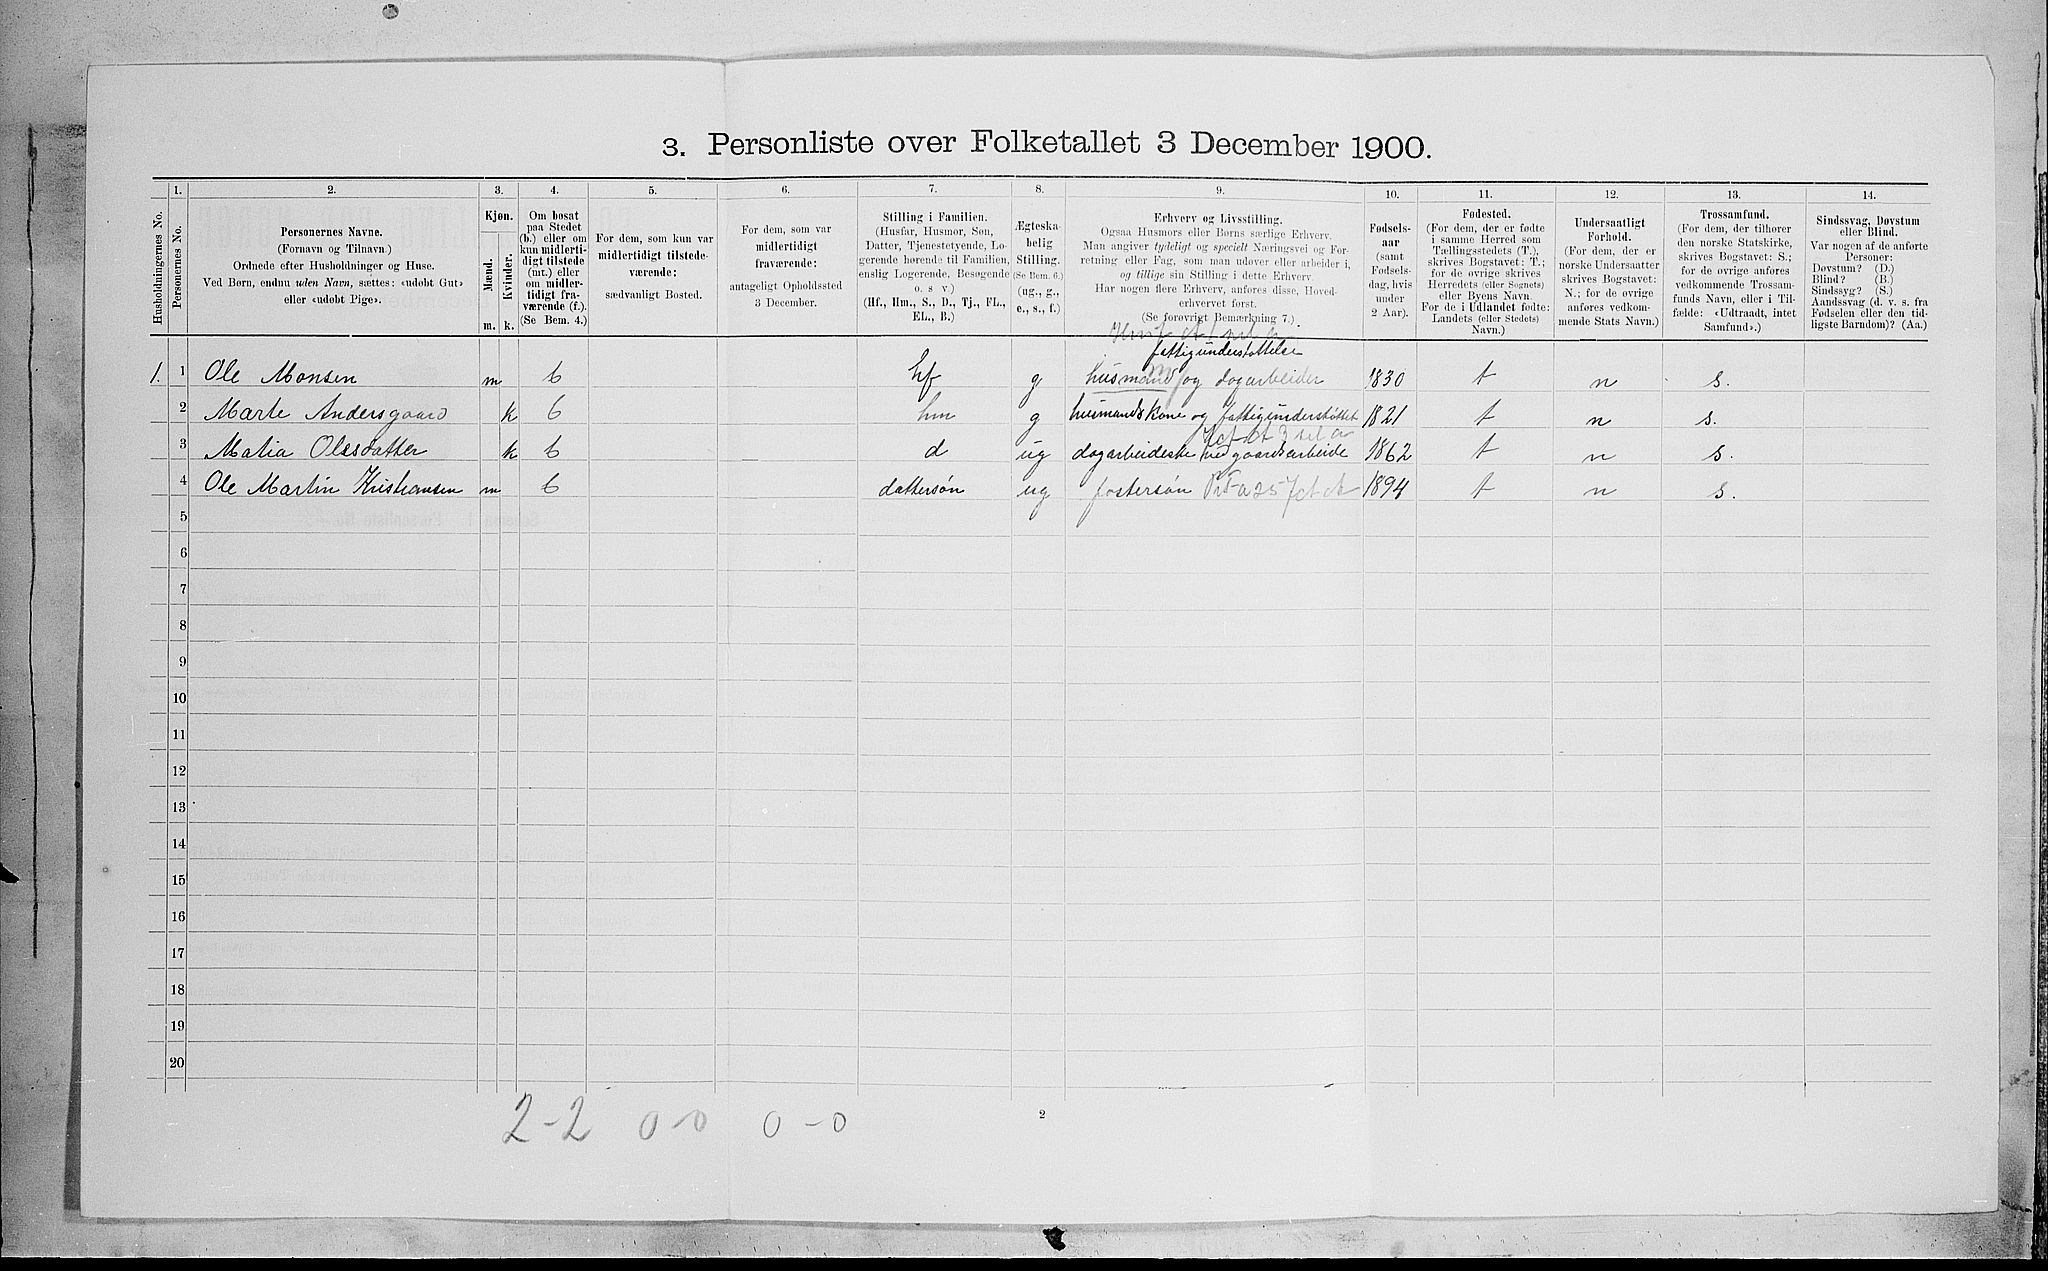 3. Personliste over Folketallet 3 December 1900.
1. 2. 3. 4. 5. 6. 7. 8. 9. 10. 11. 12. 13. 14.
Husholdningernes No.
Personernes No.
Personernes Navne.
(Fornavn og Tilnavn.)
Ordnede efter Husholdninger og Huse.
Ved Børn, endnu uden Navn, sættes: «udøbt Gut»
eller «udøbt Pige».
Kjøn.
Mænd.
Kvinder.
m. k.
Om bosat
paa Stedet
(b.) eller om
kun midlerti-
digt tilstede
(mt.) eller
om midler-
tidigt fra-
værende (f.).
(Se Bem. 4.)
For dem, som kun var
midlertidigt tilstede-
værende:
sædvanligt Bosted.
For dem, som var
midlertidigt
fraværende:
antageligt Opholdssted
3 December.
Stilling i Familien.
(Husfar, Husmor, Søn,
Datter, Tjenestetyende, Lo-
gerende hørende til Familien,
enslig Logerende, Besøgende
o. s. v.)
(Hf., Hm., S., D., Tj., FL.,
EL., B.)
Ægteska-
belig
Stilling.
(Se Bem. 6.)
(ug., g.,
e., s., f.)
Erhverv og Livsstilling.
Ogsaa Husmors eller Børns særlige Erhverv.
Man angiver tydeligt og specielt Næringsvei og For-
retning eller Fag, som man udøver eller arbeider i,
og tillige sin Stilling i dette Erhverv.
Har nogen flere Erhverv, anføres disse, Hoved-
erhvervet først.
(Se forøvrigt Bemærkning 7.)
Fødsels-
aar
(samt
Fødsels-
dag, hvis
under
2 Aar).
Fødested.
(For dem, der er fødte
i samme Herred som
Tællingsstedets (T.),
skrives Bogstavet: T.;
for de øvrige skrives
Herredets (eller Sognets)
eller Byens Navn.
For de i Udlandet fødte:
Landets (eller Stedets)
Navn.)
Undersaatligt
Forhold.
(For dem, der er
norske Undersaatter
skrives Bogstavet:
N.; for de øvrige
anføres vedkom-
mende Stats Navn.)
Trossamfund.
(For dem, der tilhører
den norske Statskirke,
skrives Bogstavet: S.;
for de øvrige anføres
vedkommende Trossam-
funds Navn, eller i Til-
fælde: «Udtraadt, intet
Samfund».)
Sindssvag, Døvstum
eller Blind.
Var nogen af de anførte
Personer:
Døvstum? (D.)
Blind? (B.)
Sindssyg? (S.)
Aandssvag (d. v. s. fra
Fødselen eller den tid-
ligste Barndom)? (Aa.)
fattigunderstøttelse
1. 1 Ole Monsen m b hf g husmand og dagarbeider 1830 t n s.
2 Marte Andersgaard k b hm g husmandskone og fattigunderstøttet 1821 t n s.
3 Matia Olesdatter k b d ug dagarbeideske ved gaardsarbeide 1862 t n s.
4 Ole Martin Kristiansen m b dattersøn ug fostersøn 1894 t n s.
5
6
7
8
9
10
11
12
13
14
15
16
17
18
19
20
2-2 0-0 0-0
2